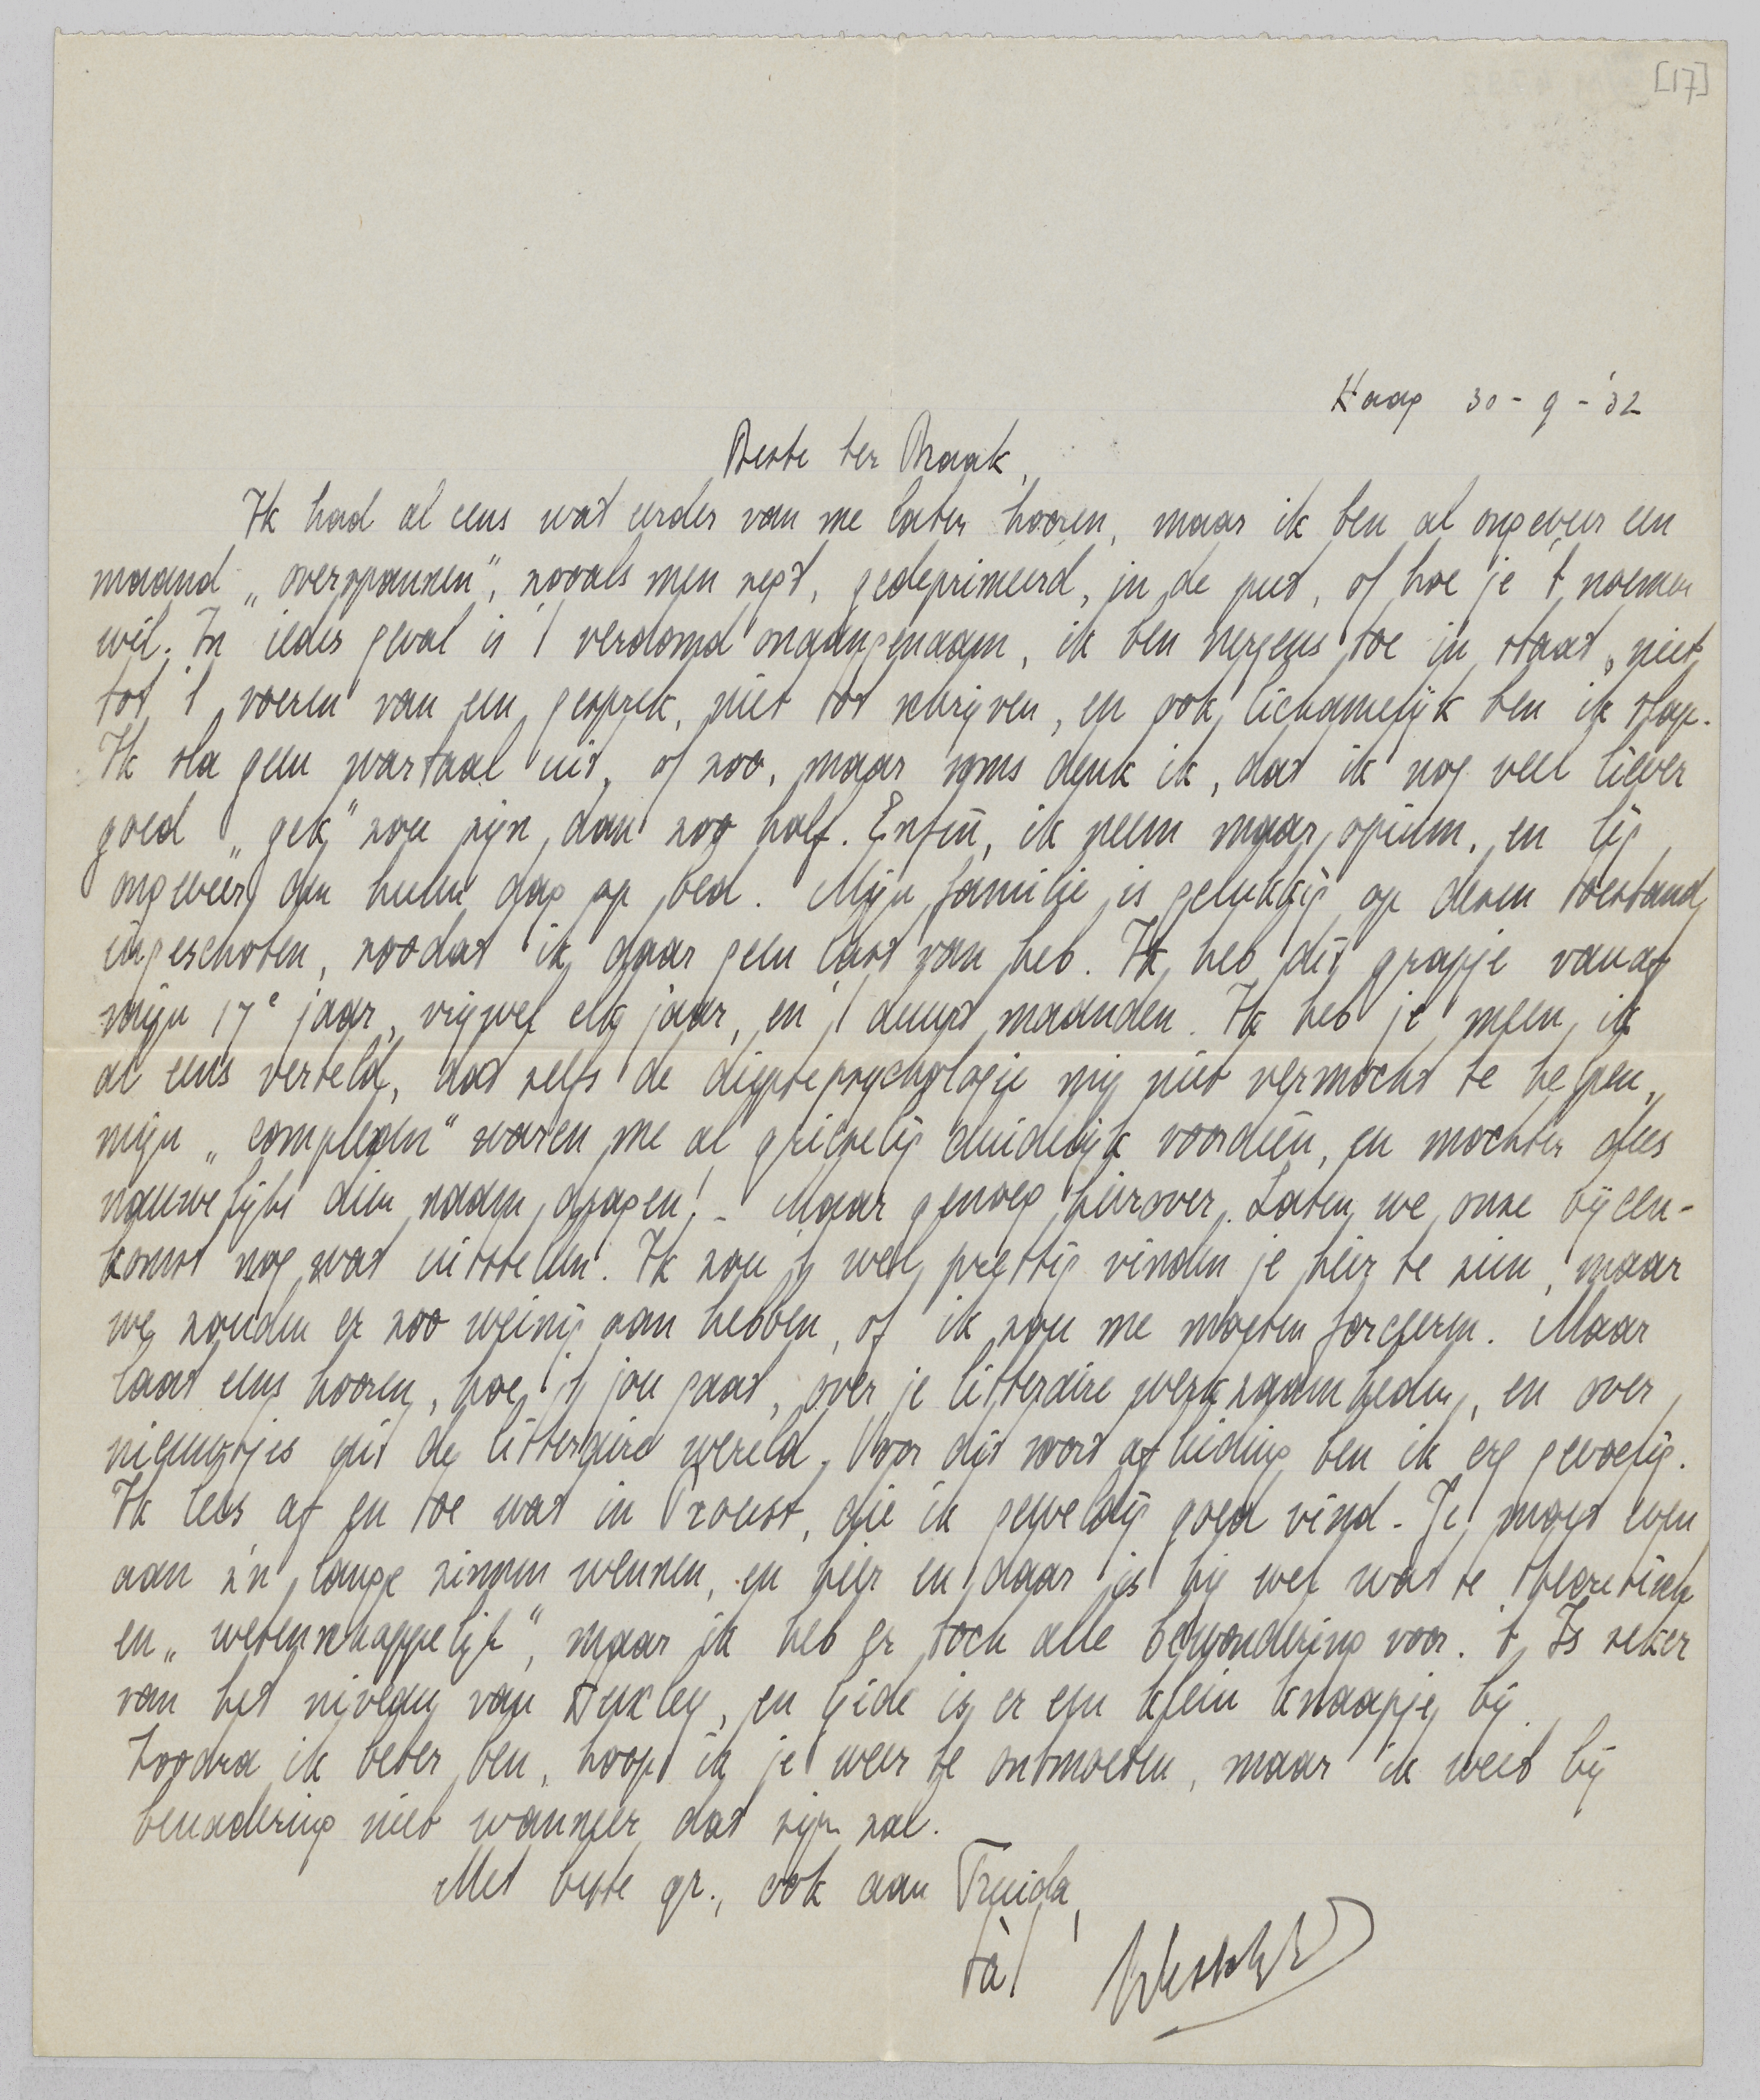 [17]
Haag 30-9-'32
Beste ter Braak,
Ik had al eens wat eerder van me laten hooren, maar ik ben al ongeveer een
maand „overspannen", zooals men zegt, gedeprimeerd, in de put, of hoe je 't noemen
wil. In ieder geval is 't verdomd onaangenaam, ik ben nergens toe in staat, niet
tot 't voeren van een gesprek, niet tot schrijven, en ook lichamelijk ben ik slap.
Ik sla geen wartaal uit, of zoo, maar soms denk ik, dat ik nog veel liever
goed „gek" zou zijn, dan zoo half. Enfin, ik neem maar opium, en lig
ongeveer den heelen dag op bed. Mijn familie is gelukkig op dezen toestand
ingeschoten, zoodat ik daar geen last van heb. Ik heb dit grapje vanaf
mijn 17e jaar, vrijwel elk jaar, en 't duurt maanden. Ik heb je meen ik
al eens verteld, dat zelfs de dieptepsychologie mij niet vermocht te helpen,
mijn „complexen" waren me al griezelig duidelijk voordien, en mochten dus
nauwelijks dien naam dragen! - Maar genoeg hierover. Laten we onze bijeen-
komst nog wat uitstellen. Ik zou 't wel prettig vinden je hier te zien, maar
we zouden er zoo weinig aan hebben, of ik zou me moeten forceeren. Maar
laat eens hooren, hoe 't jou gaat, over je litteraire werkzaamheden, en over
nieuwtjes uit de litteraire wereld. Voor dit soort afleiding ben ik erg gevoelig.
Ik lees af en toe wat in Proust, die ik geweldig goed vind. Je moet even
aan z'n lange zinnen wennen, en hier en daar is hij wel wat te theoretisch
en „wetenschappelijk", maar ik heb er toch alle bewondering voor. 't Is zeker
van het niveau van Huxley, en Gide is er een klein knaapje bij.
Zoodra ik beter ben, hoop ik je weer te ontmoeten, maar ik weet bij
benadering niet wanneer dat zijn zal.
Met beste gr., ook aan Truida,
tàt
Vestdijk